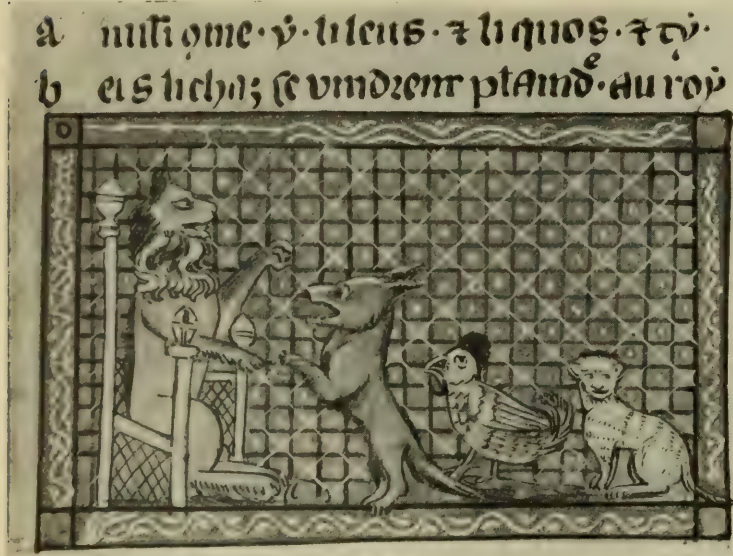 a insi ɔme · ẏ · li leus · ⁊ li quos · ⁊ tẏ ·
b ers li chaz se vindrent plaindͤ · au roẏ